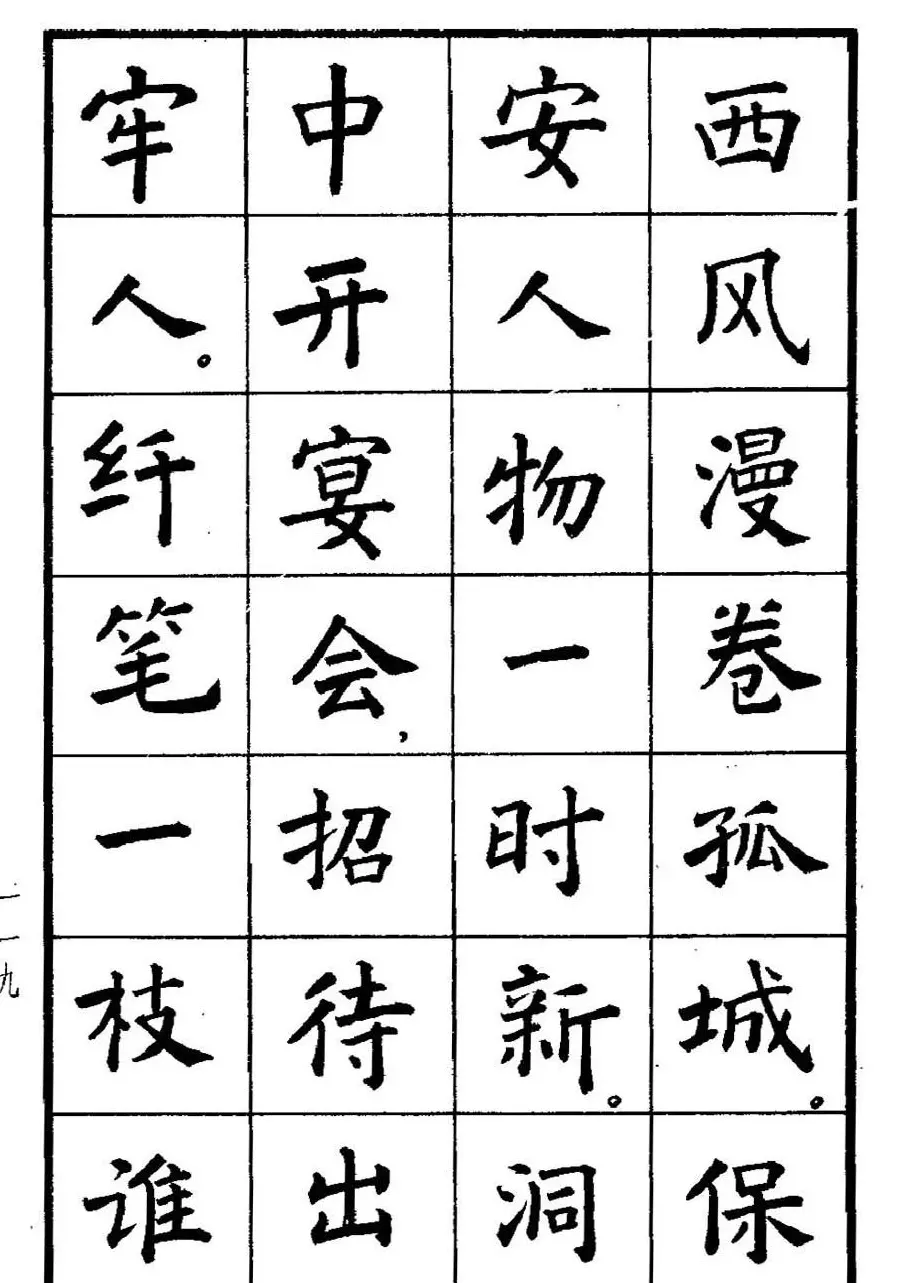 西风漫卷孤城。保
安人物一时新。洞
中开宴会，招待出
牢人。纤笔一枝谁
一一九